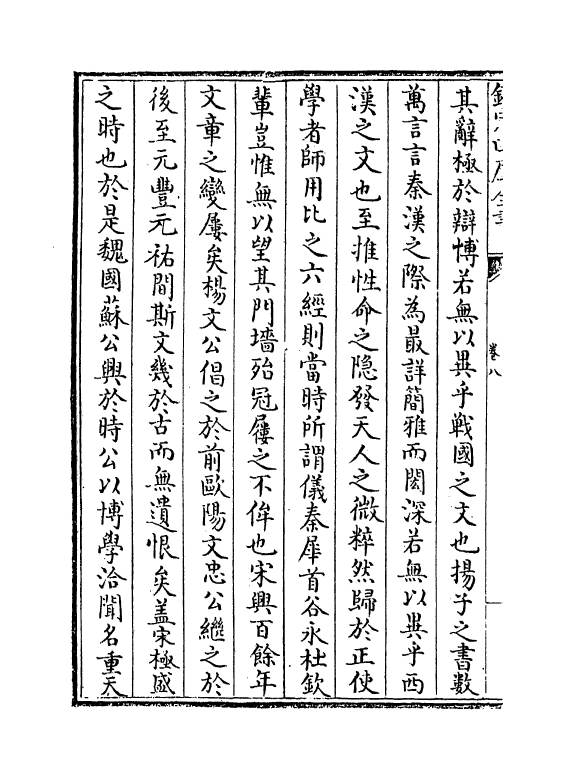 欽定四庫全書
卷八
其辭極於辯博若無以異乎戰國之文也揚子之書數
萬言言秦漢之際為最詳簡雅而閎深若無以異乎西
漢之文也至推性命之隐發天人之微粹然歸於正使
學者師用比之六經則當時所謂儀秦犀首谷永杜欽
輩豈惟無以望其門墻殆冠屨之不侔也宋興百餘年
文章之變屢矣楊文公倡之於前歐陽文忠公繼之於
後至元豐元祐間斯文幾於古而無遺恨矣盖宋極盛
之時也於是魏國蘇公興於時公以博學洽聞名重天